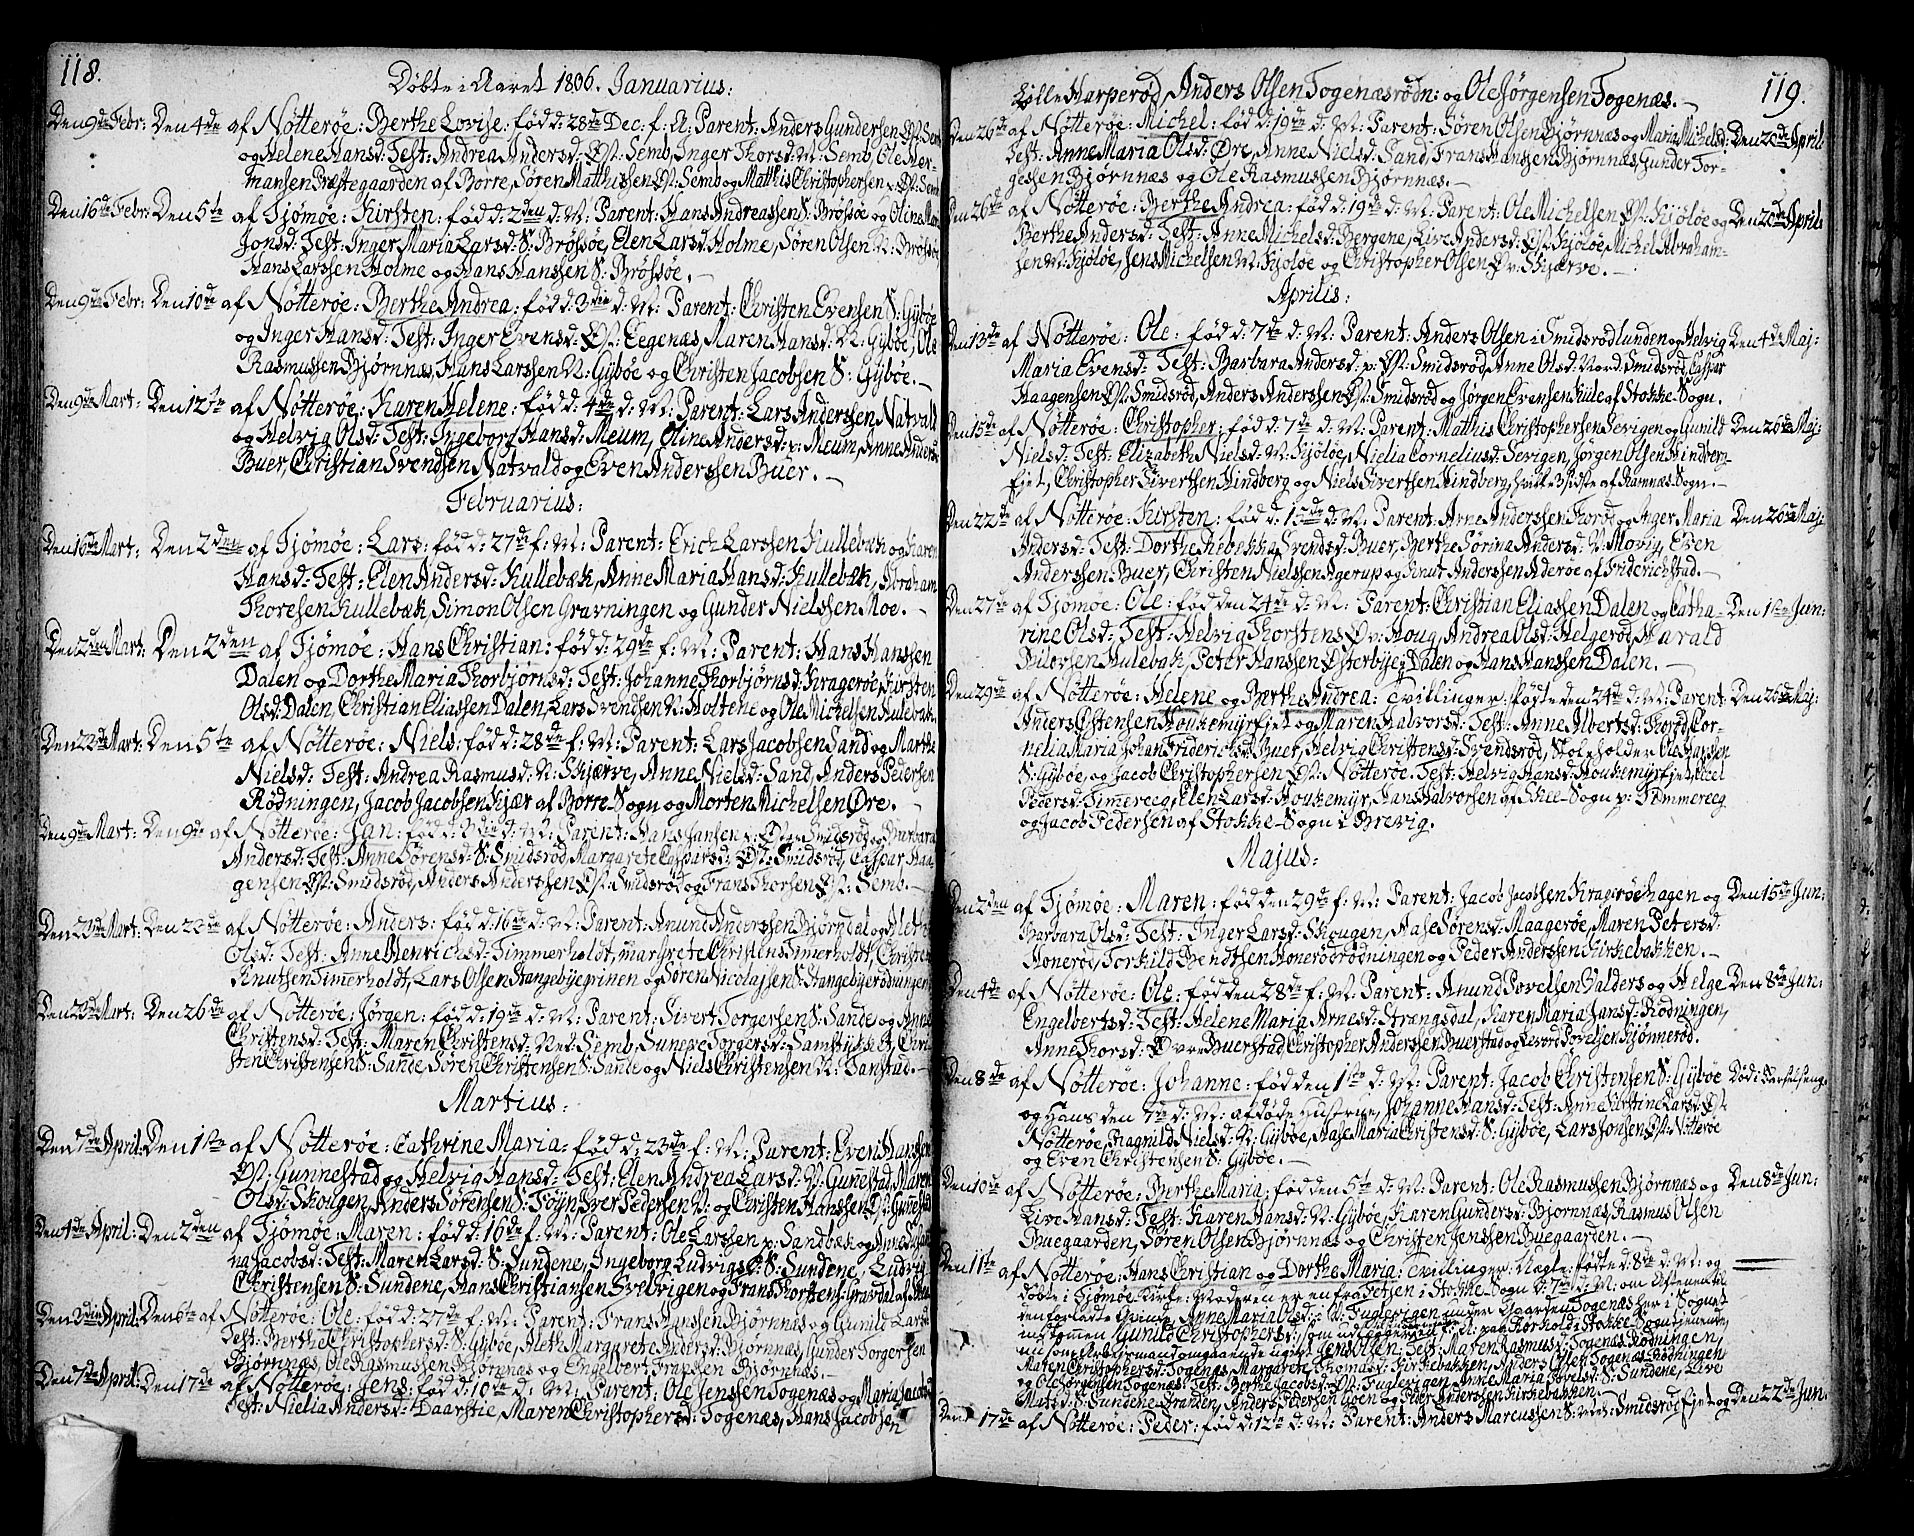 118.
Døbte i Aaret 1806. Januarius:
Den 9de Febr: Den 4de af Nøtterøe: Berthe Lovise: fød d: 28de Dec: f: A: Parent: Anders Gundersen Øst: Semb
og Helene Hansd: Test: Andrea Andersd: Øst: Semb, Inger Thorsd: N: Semb, Ole Her-
mansen Præstegaarden af Borre, Søren Matthissen Øst: Semb og Matthis Christophersen Øst: Semb
Den 16de Febr: Den 5te af Tjømøe: Kirsten: fød d: 2den d: M: Parent: Hans Andreassen S: Brøssøe og Oline Marie
Jonsd: Test: Inger Maria Larsd: S: Brøssøe, Elen Larsd: Holme, Søren Olsen N: Brøssøe,
Hans Larssen Holme og Hans Hanssen S: Brøssøe.
Den 9de Febr: Den 10de af Nøtterøe: Berthe Andrea: fød d: 3die d: M: Parent: Christen Evensen S: Gybøe
og Inger Hansd: Test: Inger Evensd: Øst: Eegenæs, Maren Hansd: N: Gybøe, Ole
Rasmussen Bjørnnæs, Hans Larssen N: Gybøe og Christen Jacobsen S: Gybøe.
Den 9de Mart: Den 12te af Nøtterøe: Karen Helene: fød d: 4de d: M: Parent: Lars Anderssen Natvald
og Helvig Olsd: Test: Ingeborg Hansd: Meum, Oline Andersd: p: Meum, Anne Andersd:
Buer, Christian Svendsen Natvald og Even Anderssen Buer.
Februarius:
Den 16de Mart: Den 2den af Tjømøe: Lars: fød d: 27de f: M: Parent: Erich Larssen Kullebæk og Karen
Hansd: Test: Elen Andersd: Kullebæk, Anne Maria Hansd: Kullebæk, Abraham
Thoresen Kullebæk, Simon Olsen Gravningen og Gunder Nielssen Moe.
Den 2den Mart: Den 2den af Tjømøe: Hans Christian: fød d: 29de f: M: Parent: Hans Hanssen
Dalen og Dorthe Maria Thorbjørnsd: Test: Johanne Thorbjørnsd: Kragerøe, Kirsten
Olsd: Dalen, Christian Eliassen Dalen, Lars Svendsen N: Holtene og Ole Michelsen Hulebak.
Den 22de Mart: Den 5te af Nøtterøe: Niels: fød d: 28de f: M: Parent: Lars Jacobsen Sand og Marthe
Nielsd: Test: Andrea Rasmusd: N: Skjærve, Anne Nielsd: Sand, Anders Pedersen
Rødningen, Jacob Jacobsen Kjær af Borre Sogn og Morten Michelsen Øre.
Den 9de Mart: Den 9de af Nøtterøe: Jan: fød d: 3die d: M: Parent: Hans Jansen Smidsrød og Barbara
Andersd: Test: Anne Sørensd: S: Smidsrød, Margarete Caspersd: Øst: Smidsrød, Caspar Haa-
gensen Øst: Smidsrød, Anders Anderssen Øst: Smidsrød og Frans Thorsen Øst: Semb.
Den 23de Mart: Den 23de af Nøtterøe: Anders: fød d: 16de d: M: Parent: Amund Anderssen Bjørndal og Aleth
Olsd: Test: Anne Henrichsd: Timmerholdt, Margrete Christens Timerholdt, Christen
Knutsen Timerholdt, Lars Olsen Stangebyegrinen og Søren Nicolajsen S: Stangebyerødningen.
Den 23de Mart: Den 26de af Nøtterøe: Jørgen: fød d: 19de d: M: Parent: Sivert Torgersen S: Sande og Anne
Christensd: Test: Maren Christensd: Ned: Semb, Suneve Torgersd: Samstykket, Chri-
sten Christensen S: Sande, Søren Christensen S: Sande og Niels Christensen N: Tanstad.
Martius:
Den 7de April: Den 1ste af Nøtterøe: Cathrine Maria: fød d: 23de f: M: Parent: Even Hanssen
Øst: Gunnestad og Helvig Hansd: Test: Elen Andrea Larsd: N: Gunnestad, Maren
Olsd: Skougen, Anders Sørensen S: Toyn, Iver Pedersen V: og Christen Hanssen Ø: Gunnestad
Den 4de April: Den 2den af Tjømøe: Maren: fød d: 16de f: M: Parent: Ole Larssen p: Sandbæk og Anne Susan-
na Jacobsd: Test: Maren Larsd: S: Sundene, Ingeborg Ludvigsd: S: Sundene, Ludvig
Christensen S: Sundene, Hans Christiansen Svelvigen og Frans Thorstens: Gravdal af
Den 3die April: Den 6te af Nøtterøe: Ole: fød d: 27de f: M: Parent: Frans Hanssen Bjørnnæs og Gunild Larsd:
Test: Berthe Christophersd: S: Gybøe, Aleth Margarete Andersd: Bjørnnæs, Gunder Torgersen
Bjørnnæs, Ole Rasmussen Bjørnnæs og Engelbert Fransen Bjørnnæs.
Den 7de April: Den 17de af Nøtterøe: Jens: fød d: 10de d: M: Parent: Ole Jenssen Togenæs og Maria Jacobsd:
Test: Nielia Andersd: Daarstie, Maren Christophersd: Togenæs, Hans Jacobsen
119.
Lille Harperød, Anders Olsen Togenæsrødn: og Ole Jørgensen Togenæs.
Den 26de af Nøtterøe: Michel: fød d: 19de d: M: Parent: Søren Olsen Bjørnnæs og Maria Michelsd: Den 20de April
Test: Anne Maria Olsd: Øre, Anne Nielsd: Sand, Frans Hanssen Bjørnnæs, Gunder Tor-
gessen Bjørnnæs og Ole Rasmussen Bjørnnæs.
Den 26de af Nøtterøe: Berthe Andrea: fød d: 19de d: M: Parent: Ole Michelsen Øst: Kjøløe og Den 20de April
Berthe Andersd: Test: Anne Michelsd: Bergene, Live Andersd: Øst: Kjøløe, Michel Abraham-
sen N: Kjøløe, Jens Michelsen N: Kjøløe og Christopher Olsen Øv: Skjærve.
Aprilis:
Den 13de af Nøtterøe: Ole: fød d: 7de d: M: Parent: Anders Olsen i Smidsrødlunden og Helvig Den 4de Maj:
Maria Evensd: Test: Barbara Andersd: p: Øst: Smidsrød, Anne Olsd: Nord: Smidsrød, Caspar
Haagensen Øst: Smidsrød, Anders Anderssen Øst: Smidsrød og Jørgen Evensen Kule af Stokke Sogn.
Den 15de af Nøtterøe: Christopher: fød d: 7de d: M: Parent: Matthis Christophersen Sevigen og Gunild Den 26de Maj:
Nielsd: Test: Elizabeth Nielsd: N: Kjøløe, Nielia Corneliusd: Sevigen, Jørgen Olsen Hindberg-
fjet, Christopher Sivertsen Hindberg og Niels Sivertsen Hindberg, hvilke 3 sidste af Ramnæs Sogn.
Den 22de af Nøtterøe: Kirsten: fød d: 15de d: M: Parent: Arne Anderssen Thorød og Inger Maria Den 26de Maj:
Andersd: Test: Dorthe Rebekka Svendsd: Buer, Berthe Sørina Andersd: N: Movig, Even
Anderssen Buer, Christen Nielssen Agerup og Knut Anderssen Aderøe af Friderichstad.
Den 27de af Tjømøe: Ole: fød den 24de d: M: Parent: Christian Eliassen Dalen og Catha- Den 1ste Jun:
rine Olsd: Test: Helvig Thorstens Øv: Houg, Andrea Olsd: Helgerød, Harald
Hulebak, Peter Hanssen Østerbye p: Dalen og Hans Hanssen Dalen.
Den 29de af Nøtterøe: Helene og Berthe Andrea: Tvillinger: fødte den 24de d: M: Parent: Den 26de Maj:
Anders Østensen Houkemyrfjet og Maren Halvorsd: Test: Anne Albertsd: Thorød, Cor-
nelia Maria Johan Friderichsd: Buer, Helvig Christensd: Svendsrød, Stoleholder Ole Hanssen
S: Gybøe, og Jacob Christophersen Øst: Nøtterøe. Test: Helvig Hansd: Houkemyrfjet,
Pedersd: Timereeg, Elen Larsd: Houkemyr, Hans Halvorsen af Skee Sogn p: Tømmereeg
og Jacob Pedersen af Stokke Sogn i Brevig.
Majus:
Den 2den af Tjømøe: Maren: fød den 29de f: M: Parent: Jacob Jacobsen Kragerøehagen og Den 15de Jun:
Barbara Olsd: Test: Inger Larsd: Skougen, Aase Sørensd: Maagerøe, Maren Petersd:
Honerød, Torkild Bendtsen Honerødrødningen og Peder Anderssen Kirkebakken.
Den 4de af Nøtterøe: Ole: fød den 28de f: M: Parent: Anund Povelsen Valders og Helge Den 8de Jun:
Engelbertsd: Test: Helene Maria Arnesd: Strængsdal, Karen Maria Jansd: Rødningen,
Anne Thorsd: Øvre Buerstad, Christopher Anderssen Buerstad og Levord Povelsen Kjønnerød.
Den 8de af Nøtterøe: Johanne: fød den 1ste d: M: Parent: Jacob Christensen S: Gybøe Død i Barselseng.
og hans den 7de d: M: afdøde Hustrue, Johanne Hansd: Test: Anne Kirstine Larsd: Øst:
Nøtterøe, Ragnild Nielsd: N: Gybøe, Aase Maria Christensd: S: Gybøe, Lars Jonsen Øst: Nøtterøe
og Even Christensen S: Gybøe.
Den 10de af Nøtterøe: Berthe Maria: fød den 5te d: M: Parent: Ole Rasmussen Bjørnnæs og Den 8de Jun:
Live Hansd: Test: Karen Hansd: N: Gybøe, Karen Gundersd: Bjørnnæs, Rasmus Olsen
Buegaarden, Søren Olsen Bjørnnæs og Christen Jenssen Buegaarden.
Den 11te af Nøtterøe: Hans Christian og Dorthe Maria: Tvillinger: Uægte: fødte d: 8de d: M: og
døbte i Tjømøe Kirke: Moderen er en fra Fetsen i Stokke Sogn d: 7de d: M: om Aftenen til
denforladt Qvinde, Anne Maria Olsd: N: Fuglevigen under Gaarden Togenæs her i Sognet
indkommen Gunild Christophersd: som udlæggerved
nu som Arbeidsmand omgaaende ugivt Jens Olsen: Test: Maren Rasmusd: Togenæs Rødningen,
Maren Christophersd: Togenæs, Margarete Thomasd: Kirkebakken, Anders Olsen Togenæs Rødningen
og Ole Jørgensen Togenæs: Test: Berthe Jacobsd: Øst: Fuglevigen, Anne Maria Povelsd: S: Sundene, Live
S: Sundene Stranden, Anders Pedersen Goen og Peder Anderssen Kirkebakken.
Den 17de af Nøtterøe: Peder: fød d: 12te d: M: Parent: Anders Marcussen S: Smidsrød fjet og Den 22de Jun: